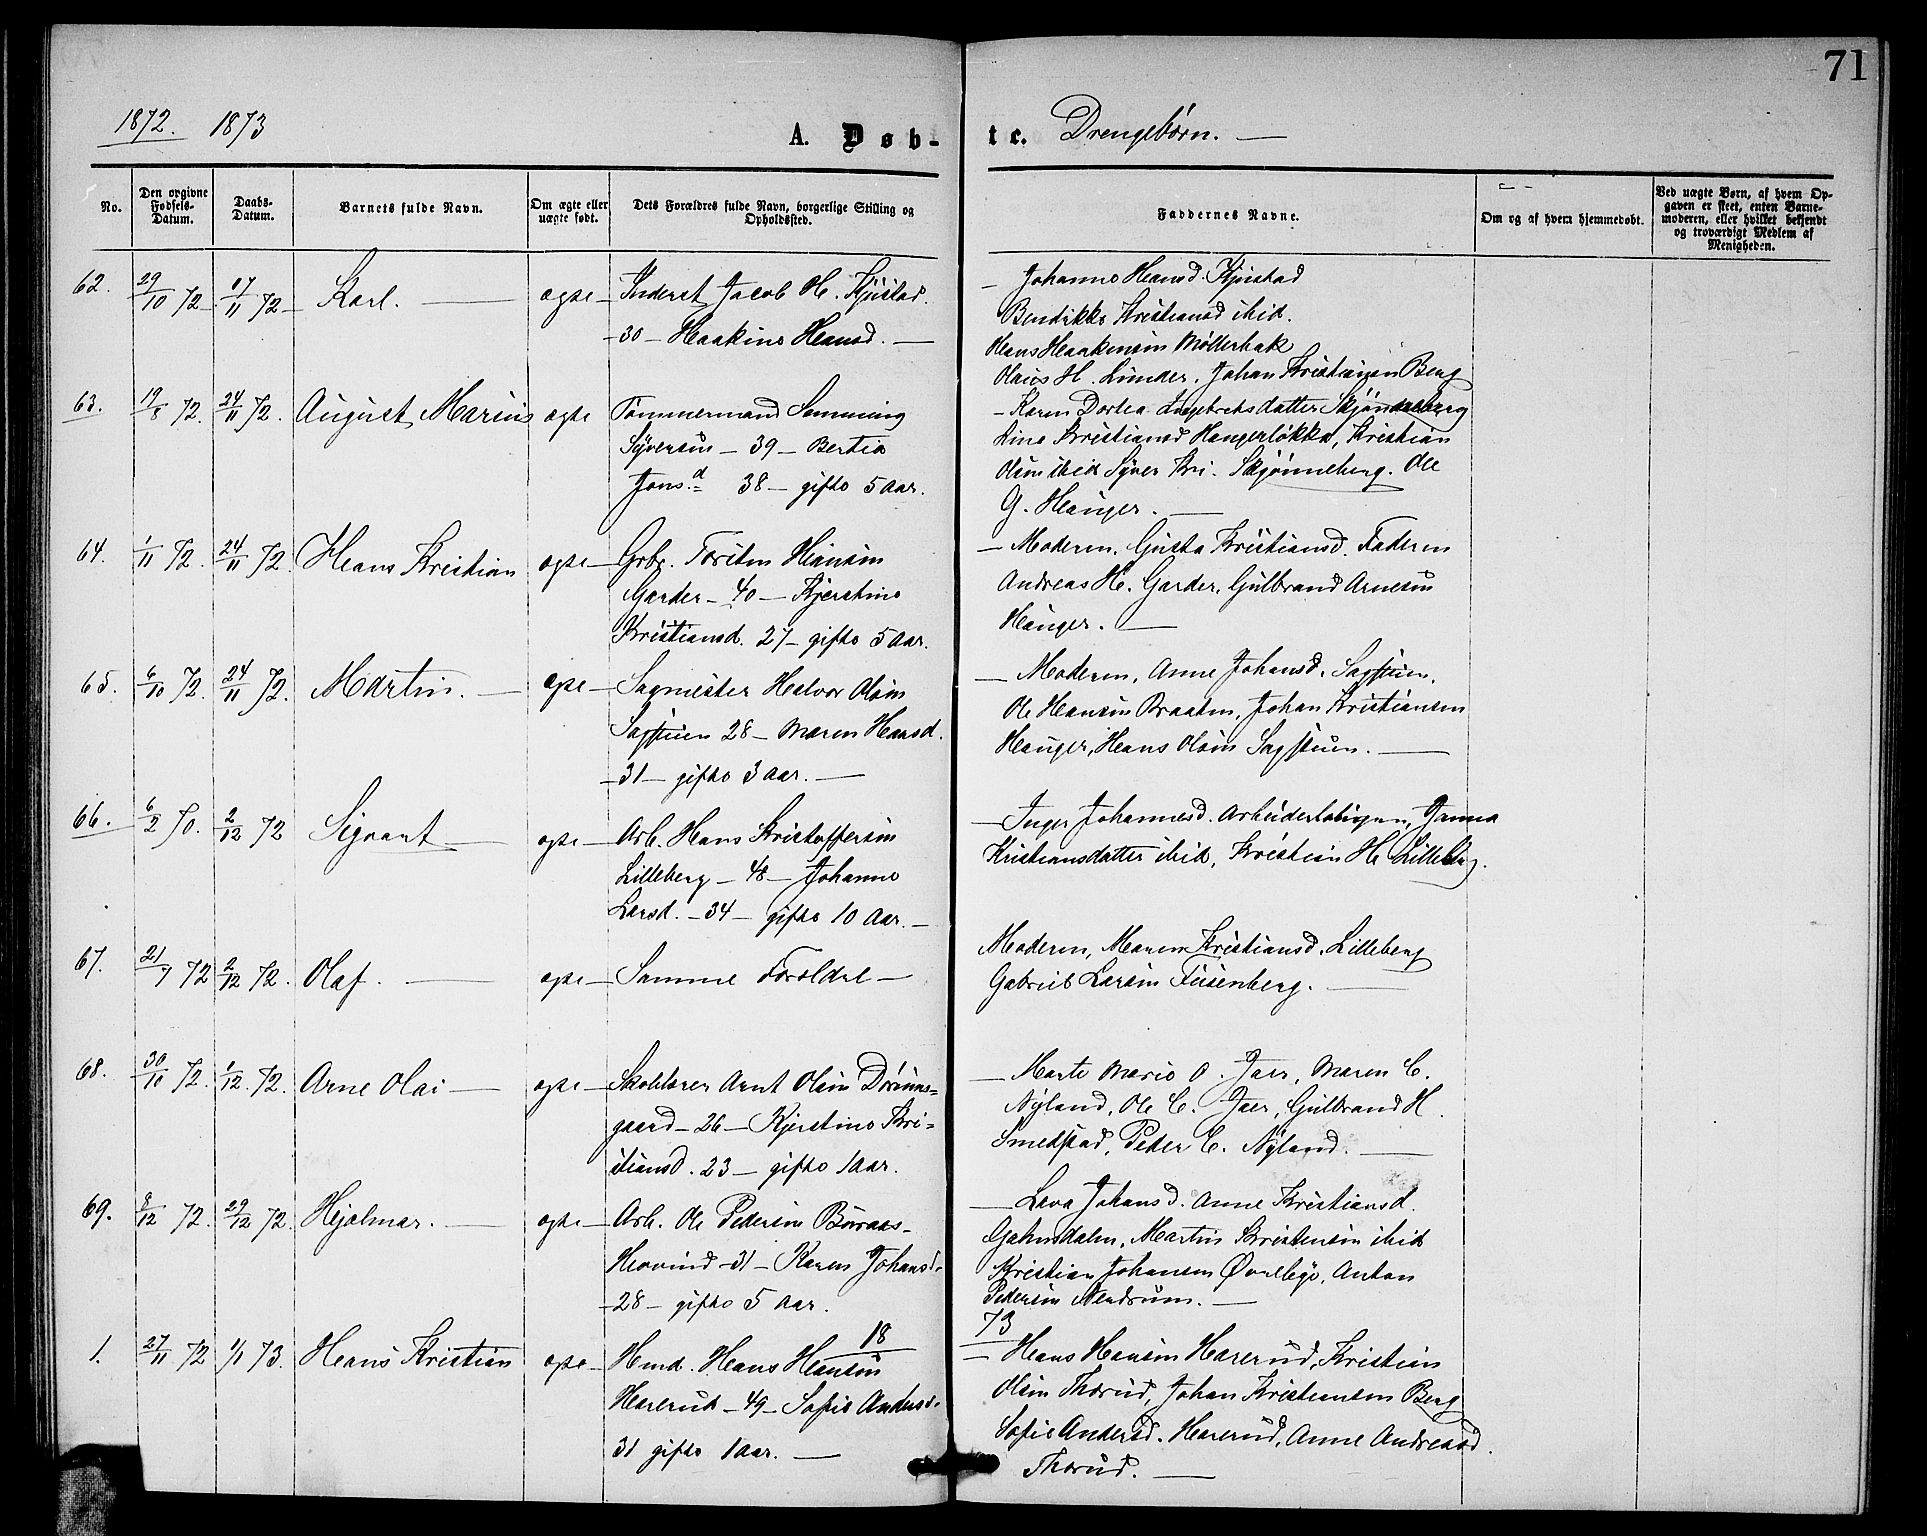 71
1872. 1873
A. Døb-
te. Drengebørn.
No.
Den opgivne Fødsels-Datum.
Daabs-Datum.
Barnets fulde Navn.
Om ægte eller uægte født.
Dets Forældres fulde Navn, borgerlige Stilling og Opholdssted.
Faddernes Navne.
Om og af hvem hjemmedøbt.
Ved uægte Børn, af hvem Opgaven er skeet, enten Barnemoderen, eller hvilket bekjendt og troværdigt Medlem af Menigheden.
62. 29/10 72 17/11 72 Karl. ægte Inderst Jacob H. Kjustad.
30 Haakine Hansd.
Johanne Hansd. Kjustad
Bendikke Kristiansd ibid.
Hans Haakensen Møllerbak
Olaus H. Lunder. Johan Kristiansen Berg
63. 19/8 72. 24/11 72. August Marius ægte Tømmermand Semming
Syversen 39 Bertia
Jonsd 38 gifte 5 Aar.
Karen Dortea Engebretsdatter Skjønneberg
Line Kristiansd Haugerløkka, Kristian
Olsen ibid Syver Kri. Skjønneberg. Ole
G. Hauger.
64. 1/11 72. 24/11 72. Hans Kristian ægte Grbr. Torsten Hansen
Garder 40 Kjerstine
Kristiansd. 27 gifte 5 Aar.
Moderen. Gusta Kristiansd. Faderen
Andreas H. Garder, Gulbrand Arnesen
Hauger.
65. 6/10 72. 24/11 72. Martin. ægte Sagmester Halvor Olsen
Sagstuen 28 Maren Hansd.
31 gifte 3 Aar.
Moderen, Anne Johansd. Sagstuen.
Ole Hansen Braaten, Johan Kristiansen
Hauger, Hans Olsen Sagstuen.
66. 6/2 70. 2/12 72 Sigvart ægte Arb. Hans Kristoffersen
Lilleberg 48 Johanne
Larsd. 34 gifte 10 Aar.
Inger Johannesd. Arbeiderboligen, Janna
Kristiansdatter ibid, Kristian H. Lilleberg.
67. 21/7 72 2/12 72. Olaf. ægte Samme Forældre
Moderen, Maren Kristiansd. Lilleberg
Gabriel Larsen Fusenberg.
68. 30/10 72. 1/12. 72. Arne Olai ægte Skolelærer Arnt Olsen Drøms=
gaard 26 Kjerstine Kri=
stiansd. 23 gifte 1 Aar.
Marte Marie O. Jaer, Maren C.
Nyland, Ole C. Jaer, Gulbrand H.
Smedstad, Peder C. Nyland.
69. 8/12 72. 29/12 72. Hjalmar. ægte Arb. Ole Pedersen Buraas-
Hovind 31 Karen Johansd.
28 gifte 5 Aar.
Lava Johansd. Anne Kristiansd.
Martin Kristensen ibid
Kristian Johansen Øvrebye, Anton
Pedersen Nendrum.
18 73
1. 27/11 72 1/1 73. Hans Kristian ægte Hmd. Hans Hansen
Harerud 49 Sofie Andersd.
31 gifte 1 Aar.
Hans Hansen Harerud, Kristian
Olsen Thorud, Johan Kristiansen Berg
Sofie Andersd. Harerud, Anne Andreasd.
Thorud.